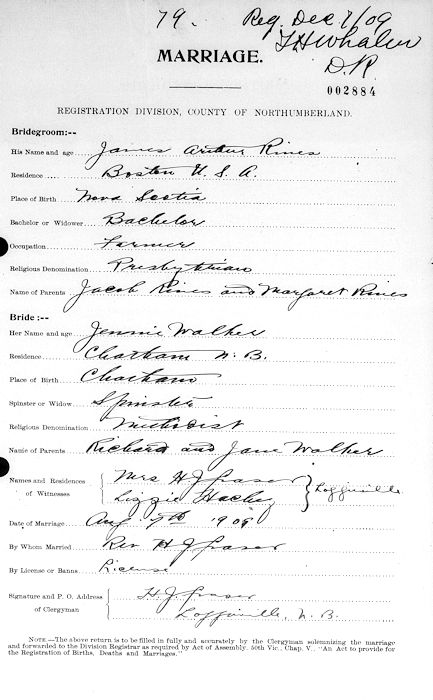 79. Reg. Dec 7/09
T H Whalen
MARRIAGE. D.R.
002884
REGISTRATION DIVISION, COUNTY OF NORTHUMBERLAND.
Bridegroom:--
His Name and age James Arthur Rines
Residence Boston U. S. A.
Place of Birth Nova Scotia
Bachelor or Widower Bachelor
Occupation Farmer
Religious Denomination Presbyterian
Name of Parents Jacob Rines and Margaret Rines
Bride:--
Her Name and age Jennie Walker
Residence Chatham N. B.
Place of Birth Chatham
Spinster or Widow Spinster
Religious Denomination Methodist
Name of Parents Richard and Jane Walker
Names and Residences Mrs H J Fraser
of Witnesses Lizzie Loggieville
Date of Marriage Aug 7th 1909
By Whom Married Rev H J Fraser
By License or Banns License
Signature and P. O. Address H J Fraser
of Clergyman Loggieville, N. B.
NOTE.—The above return is to be filled in fully and accurately by the Clergyman solemnizing the marriage
and forwarded to the Division Registrar as required by Act of Assembly, 50th Vic., Chap. V. "An Act to provide for
the Registration of Births, Deaths and Marriages."